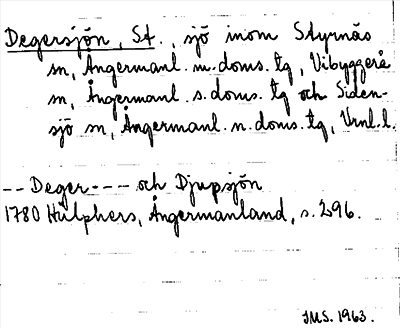 Degersjön, St., sjö inom Styrnäs
sn, Ångermanl. m. doms. tg, Vibyggerå
sn, Ångermanl. s. doms. tg och Siden-
sjö sn, Ångermanl. n. doms. tg, Vrnl. l.
-- Deger --- och Djupsjön
1780 Hülphers, Ångermanland, s. 296.
JMS. 1963.